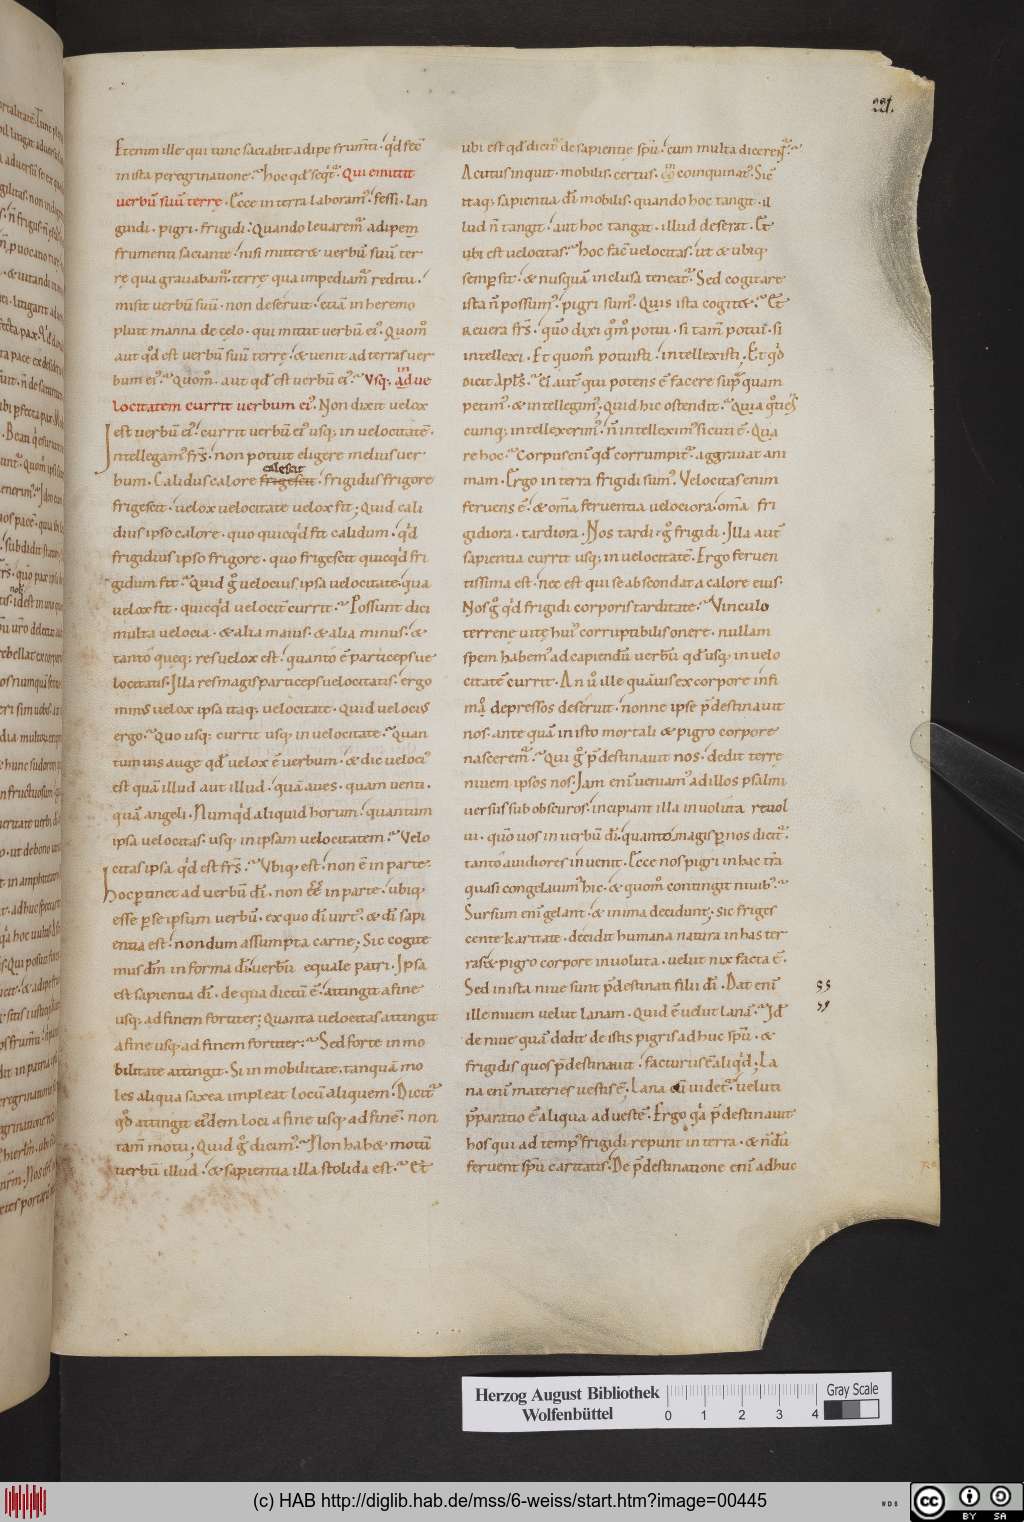 221.
Etenim ille qui tunc saciabit adipe frum̄ti· qd̓ fec̄
in ista peregrinatione? hoc qd̓ seqt̓. Qui emittit
verbū suū terrę. Ecce in terra laboram᷒. fessi. lan
guidi. pigri. frigidi. Quando levarem᷒ adipem
frumenti saciante. nisi mitteret verbū suū ter
rę qua gravabam᷒. terrę qua impediam᷒ reditu.
misit verbū suū. non deseruit. etiā in heremo
pluit manna de cęlo. qui mittit verbū ei᷒. Quom̊
aut qd̓ est verbū suū terrę. & venit ad terras ver
bum ei᷒? Quom̊. aut qd̓ est verbū ei᷒? Vsq; in adve
locitatem currit verbum ei᷒. Non dixit velox
est verbū ei᷒. currit verbū ei᷒ usq; in velocitatē.
Intellegam᷒ frs̄. non potuit eligere melius ver
bum. Calidus calore frigescit calescit. frigidus frigore
frigescit. velox velocitate velox fit; Quid cali
dius ipso calore. quo quicqd̓ fit calidum. qd̓
frigidius ipso frigore. quo frigescit quicqd̓ fri
gidum fit? Quid g̊ velocius ipsa velocitate. qua
velox fit. quicqd̓ velocit̄ currit? Possunt dici
multa velocia. & alia maius. & alia minus. &
tanto queq; res velox est. quanto ē particeps ve
locitatis. Illa res magis particeps velocitatis. ergo
min᷒ velox ipsa itaq; velocitate. quid veloci᷒
ergo? Quo usq; currit usq; in velocitate? Quan
tum vis auge qd̓ velox ē verbum. & dic veloci᷒
est quā illud aut illud. quā aves. quam venti.
quā angeli. Numqd̓ aliquid horum. quantum
ipsa velocitas. usq; in ipsam velocitatem? Velo
citas ipsa qd̓ est frs̄? Vbiq; est. non ē in parte.
Hoc ptinet ad verbū dī. non ēē in parte. ubiq;
esse p se ipsum verbū. ex quo dī virt᷒. & dī sapi
entia est. nondum assumpta carne; Sic cogite
mus dm̄ in forma dī. verbū equale patri. Ipsa
est sapientia dī. de qua dictū ē. attingit a fine
usq; ad finem fortiter; Quanta velocitas attingit
a fine usq; ad finem fortiter:? Sed forte in mo
bilitate attingit. Si in mobilitate. tanquā mo
les aliqua saxea impleat locū aliquem. Dicit᷒
qd̓ attingit ei᷒dem loci a fine usq; ad finē. non
tam̄ motu; Quid g̊ dicim᷒? Non habet motū
verbū illud. & sapientia illa stolida est? Et
ubi est qd̓ dicit᷒ de sapientię spū. cum multa dicerent᷒?
Acutus inquit. mobilis. certus. coinquinat᷒. Sic̄
itaq; sapientia dī mobilis. quando hoc tangit. il
lud n̄ tangit. aut hoc tangat. illud deserat. Et
ubi est velocitas? hoc fac̄ velocitas. ut & ubiq;
semp sit. & nusquā inclusa teneat᷒. Sed cogitare
ista n̄ possum᷒. pigri sum᷒. Quis ista cogitet? Et
revera frs̄. quō dixi qm̊ potui. si tam̄ potui. si
intellexi. Et quom̊ potuisti. intellexisti. Et qd̓
dicit aplūs? Ei aut̄ qui potens ē facere sup quam
petim᷒. & intellegim᷒. Quid hic ostendit? Quia qͥties
cunq; intellexerim᷒. n̄ intellexim᷒ sicuti ē. Qua
re hoc? Corpus enī qd̓ corrumpit᷒. aggravat ani
mam. Ergo in terra frigidi sum᷒. Velocitas enim
fervens ē. & om̄a ferventia velociora. om̄a fri
gidiora. tardiora. Nos tardi. g̊ frigidi. Illa aut̄
sapientia currit usq; in velocitatē. Ergo ferven
tissima est. nec est qui se abscondat a calore eius.
Nos g̊ qd̓ frigidi corporis tarditate? Vinculo
terrenę vitę hui᷒ corruptibilis onere. nullam
spem habem᷒ ad capiendū verbū. qd̓ usq; in velo
citatē currit. An v̊ ille quāuis ex corpore infi
ma depressos deseruit. nonne ipse pdestinavit
nos. ante quā in isto mortali & pigro corpore
nascerem᷒? Qui g̊ pdestinavit nos. dedit terrę
nivem ipsos nos. Iam enī veniam᷒ ad illos psalmi
versus sub obscuros. incipiant illa involuta revol
vi. quō vos in verbū dī. quanto magis p nos dicit᷒.
tanto avidiores invenit. Ecce nos pigri in hac tr̄a
quasi congelavim᷒ hic. & quom̊ contingit nivib᷒?
Sursum enī gelant. & in ima decidunt; sic friges
cente karitate. decidit humana natura in has ter
ras & pigro corpore involuta. velut nix facta ē.
Sed in ista nive sunt pdestinati filii dī. Dat enī
ille nivem velut lanam. Quid ē velut lanā? Id̄
de nive quā dedit de istis pigris adhuc spū. &
frigidis quos pdestinavit. facturus ē aliqd̓; La
na enī materies vestis ē. Lana cū videt᷒. veluti
pparatio ē aliqua ad vestē. Ergo qa pdestinavit
hos qui ad temp᷒ frigidi repunt in terra. & n̄dū
fervent spū caritatis. De pdestinatione enī adhuc
Herzog August Bibliothek
Wolfenbüttel
0 1 2 3 4
Gray Scale
(c) HAB http://diglib.hab.de/mss/6-weiss/start.htm?image=00445
WDB
cc BY SA